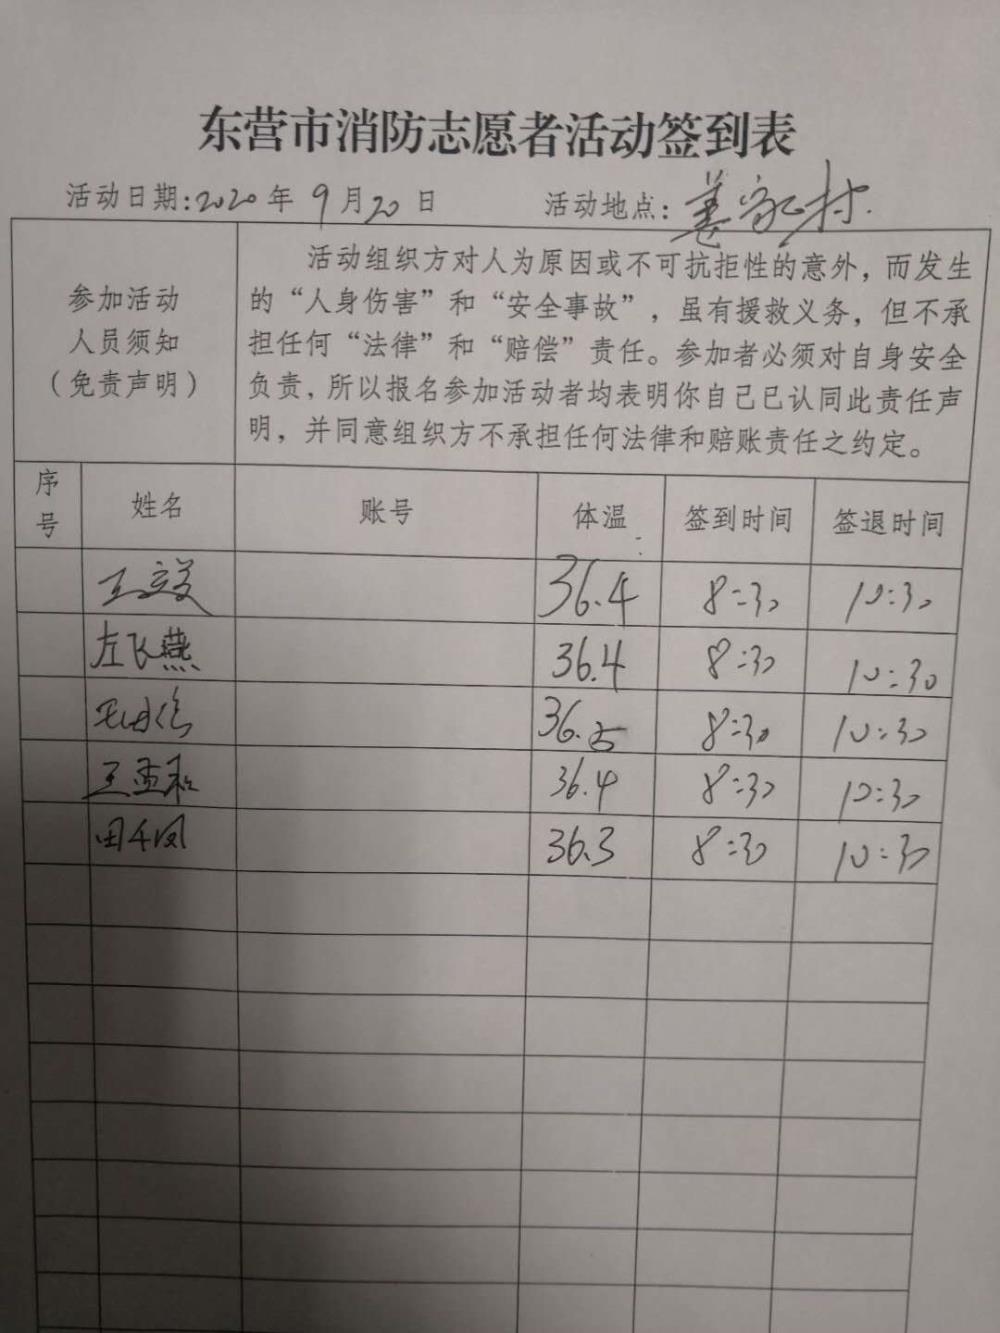 东营市消防志愿者活动签到表
活动日期:2020年9月20日 活动地点:姜家村.
参加活动
人员须知
(免责声明)
活动组织方对人为原因或不可抗拒性的意外，而发生
的“人身伤害”和“安全事故”，虽有援救义务，但不承
担任何“法律”和“赔偿”责任。参加者必须对自身安全
负责，所以报名参加活动者均表明你自己已认同此责任声
明，并同意组织方不承担任何法律和赔账责任之约定。
序号 姓名 账号 体温 签到时间 签退时间
36.4 8:30 10:30
左飞燕 36.4 8:30 10:30
36.5 8:30 10:30
王孟和 36.4 8:30 10:30
田千凤 36.3 8:30 10:30